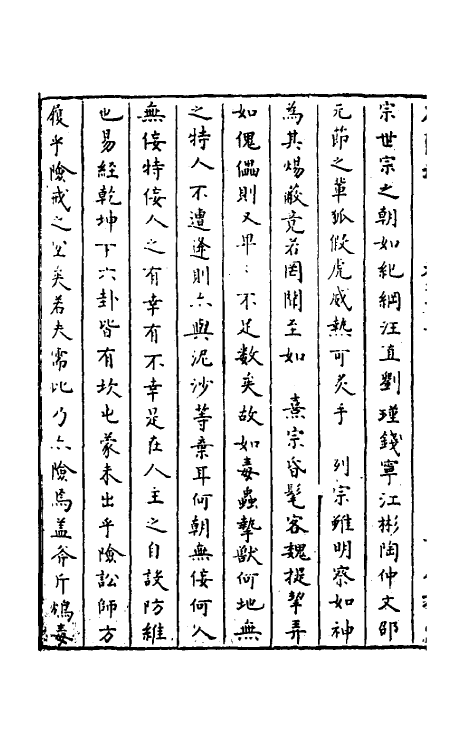 宗世宗之朝如紀綱汪直劉瑾錢寧江彬陶仲文邵
元節之輩狐假虎威熱可炙手　列宗雖明察如神
為其煬蔽竟若罔聞至如　熹宗昏髦客魏提挈弄
如傀儡則又畀：不足數矣故如毒蟲摯獸何地無
之特人不遭逢則亦與泥沙等棄耳何朝無佞何人
無佞特佞人之有幸有不幸是在人主之自設防維
也易經乾坤下六卦皆有坎屯蒙未出乎險訟師方
履乎險戒之至矣若夫需比乃亦險焉蓋斧斤鴆毒